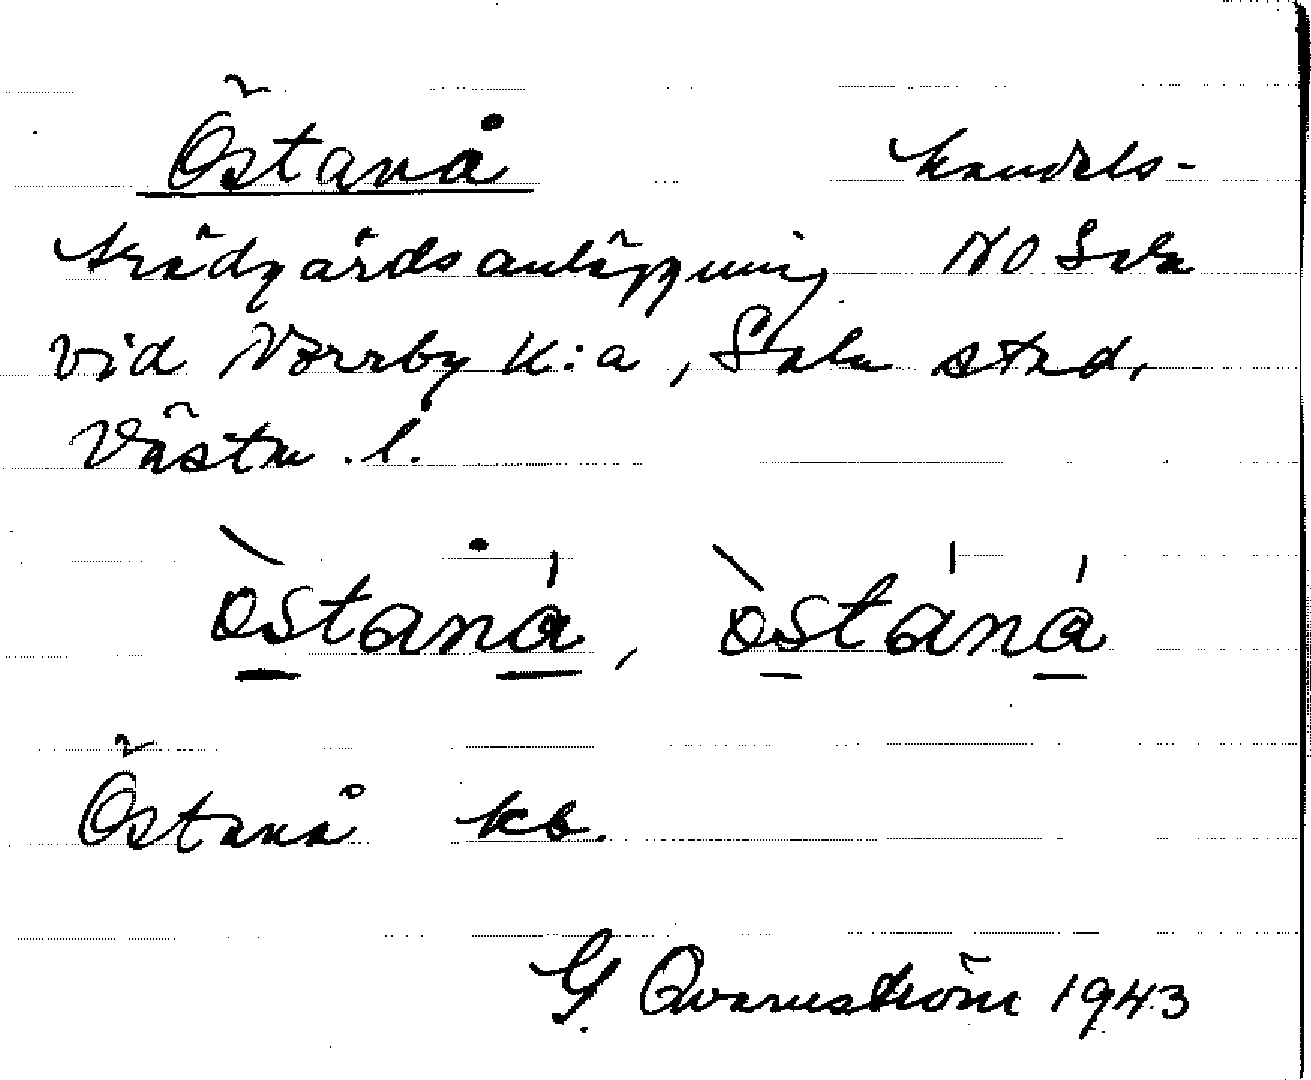 Östanå handels-
trädgårdsanläggning NO Sala
vid Norrby k:a, Sala stad,
Västm. l.
òstaná, òstáná
Östanå kb.
G. Qvarnström 1943